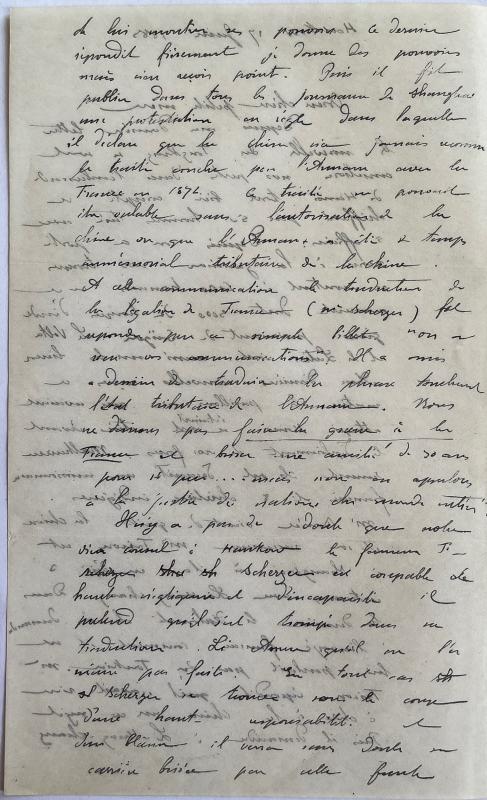 de lui montrer ses pouvoirs ce dernier
répondit fièrement je donne des pouvoirs
mais n'en reçois point. Puis il fit
publier dans tous les journaux de Shanghai
une protestation en règle dans laquelle
il déclare que la Chine n'a jamais reconnu
le traité conclu par l'Annam avec la
France en 1874. Ce traité ne pouvait
être valable sans l'autorisation de la
Chine vu que l'Annam a été de temps
immémorial tributaire de la Chine.
A cette communication le traducteur de
la légation de France (Mr Scherzer) fit
répondre par un simple billet "on a
reçu vos communications" Il a mis
à dessein de traduire la phrase touchant
l'état tributaire de l'Annam. Nous
ne dirons pas faire la guerre à la
France et briser une amitié de 30 ans
pour si peu... mais nous en appelons
à la justice des nations du monde entier
Il n'y a pas de doute que notre
vice consul à Hankow le fameux
Scherzer est coupable de
haute négligence et d'incapacité il
prétend qu'il s'est trompé dans sa
traduction. L'autre qu'il ne l'a
même pas faite. En tout cas
Scherzer se trouve sous le coup
d'une haute responsabilité et
d'un blâme il verra sans doute sa
carrière brisée par cette faute